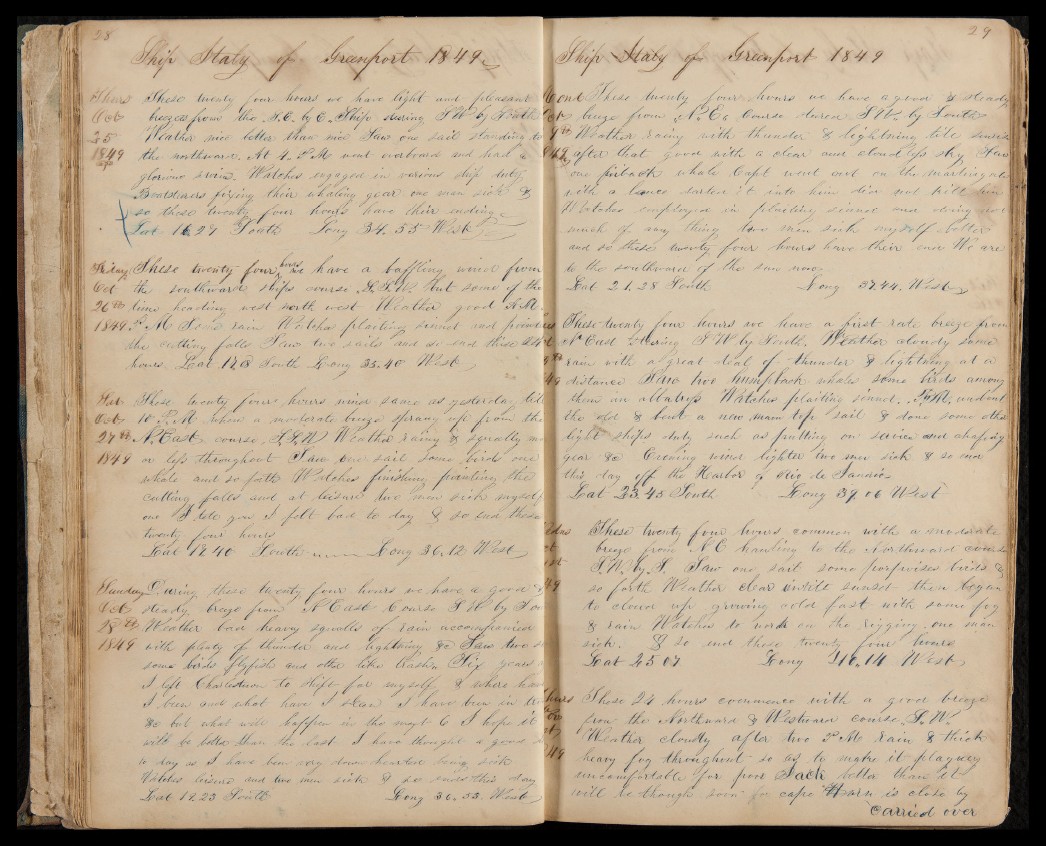 28
Ship Italy of Greenport 1849
Thurs These twenty four hours we have light and pleasant
Oct breezes from the N.E. by E. Ships steering S W. by South
25 Weather nice better than nice Saw one sail standing to
1849 the northward. At 4. P.M. went overboard and had a
glorious swim. Watches engaged in various ship duty
Boatsteerers fixing their whaling gear one man sick &
so these twenty four hours have their ending
Lat 16.29 South Long 34.35 West
Friday These twenty four hours we have a baffling wind from
Oct the southward ships course S.S.W. but some of the
26th time heading west north west Weather good A.M.
1849. P.M some rain Watches plaiting sinnet and pointing
the cutting falls Saw two sails and so end these 24
hours. Lat South Long 35.40 West
Sat These twenty four hours wind same as yesterday till
Oct 10 P.M when a moderate breeze sprang up from the
27th N. East course S.S.W Weather rainy & squally more
1849 or less throughout Saw one sail some birds one
whale and so forth Watches finishing pointing the
cutting falls and at leisure two men sick myself
one I tell you I felt bad to day & so end these
twenty four hours
Lat 18.40 South Long 36.12 West
Sunday During these twenty four hours we have a good &
Oct steady breeze from N East Course S W by South
28th Weather bad heavy squalls of rain accompanied
1849 with plenty of thunder and lightning &c Saw two
some birds flyfish and other like trash Six years
I left Charlestown to shift for myself & where have
I been and what have I seen I have been in
&c but what will happen in the next 6 I hope it
will be better than the last I have thought a good
to day as I have been very down hearted being sick
Watches leisure and two men sick & so ends this day
Lat 19.23 South Long 36.53. West
29
Ship Italy of Greenport 1849
These twenty four hours we have a good & steady
Oct breeze from N.E. Course steered S W. by South
Weather rainy with thunder & lightning till sunrise
after that good with a clear and cloudless sky Saw
one finback whale Capt went out on the martingale
with a lance darted it into him did not kill him
Watches employed in plaiting sinnet and doing not
much of any thing two men sick myself better
and so these twenty four hours have their end We are
to the southward of the sun now
Lat 21.28 South Long 37.44. West
These twenty four hours we have a first rate breeze from
N East steering S W by South. Weather cloudy some
rain with a great deal of thunder & lightning at a
distance Saw two humpback whales some birds among
them an albatross Watches plaiting sennet. P.M. unbent
the old & bent a new main top sail & done some other
light ships duty such as putting on service and chafing
gear &c Evening wind lighter two men sick & so ends
this day off the Harbor of Rio de Janeiro
Lat 23.45 South Long 39.06 West
These twenty four hours commence with a moderate
breeze from N E hauling to the Northward course
S.W. by S. Saw one sail some porpoises birds &
so forth Weather clear until sunset then began
to cloud up growing cold fast with some fog
& rain Watches to work on the rigging. one man
sick. & so end these twenty four hours
Lat 25 07 Long 41 West
Thurs These 24 hours commence with a good breeze
Nov from the Northward & Westward course S.W.
Weather cloudy after two P M rain & thick
heavy fog throughout so as to make it plaguey
uncomfortable for poor Jack better than it
will be though soon for cape Horn is close by
Carried over